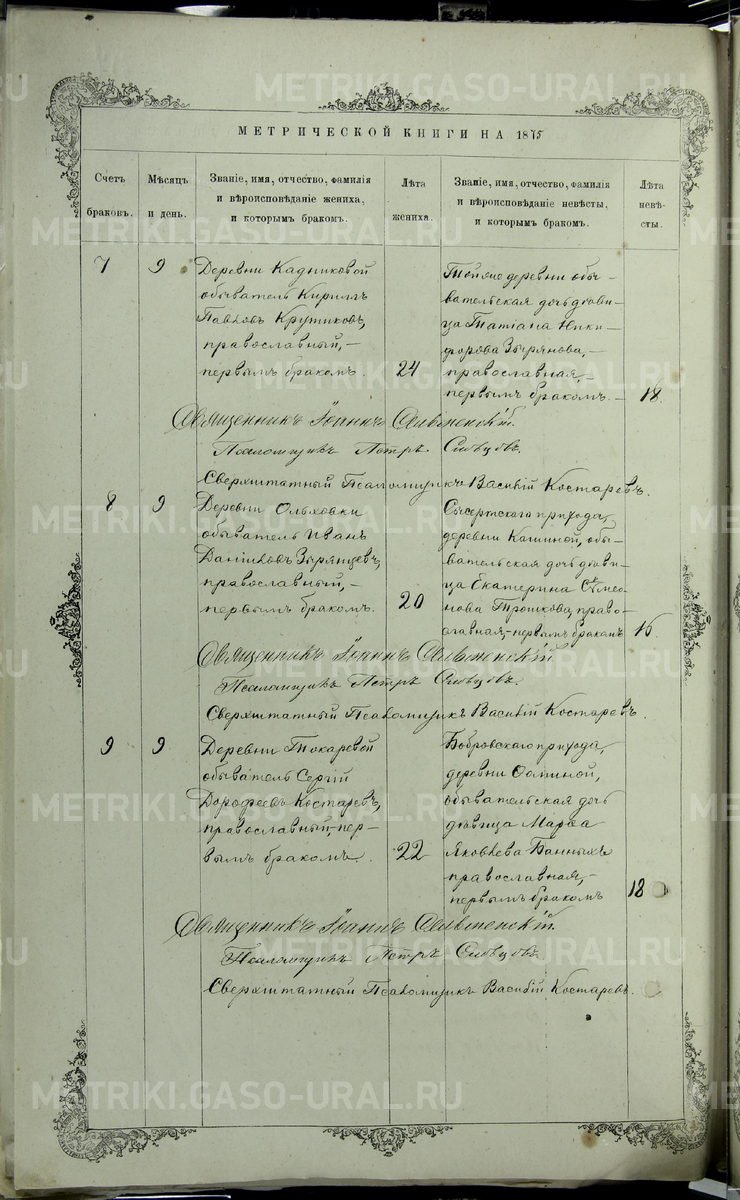 МЕТРИЧЕСКОЙ КНИГИ НА 1875
Счетъ браковъ.
Мѣсяцъ и день.
Званіе, имя, отчество, фамилія
и вѣроисповѣданіе жениха,
и которымъ бракомъ.
Лѣта жениха.
Званіе, имя, отчество, фамилія
и вѣроисповѣданіе невѣсты,
и которымъ бракомъ.
Лѣта невѣ-
сты.
7
9
Деревни Кадниковой
обыватель Кириллъ
Павловъ Крутиковъ,
православный,-
первымъ бракомъ.
24
Той же деревни обы-
вательская дочь дѣви-
ца Татіана Ники-
форова Зырянова,-
православная,-
первымъ бракомъ.-
18.
Священникъ Іоаннъ
Псаломщикъ Петръ Словцовъ.
Сверхштатный Псаломщикъ Василій Костаревъ.
8
9
Деревни Ольховки
обыватель Иванъ
Даніиловъ Зырянцевъ,
православный,-
первымъ бракомъ.
20
Сысертскаго прихода,
деревни Кашиной, обы-
вательская дочь дѣви-
ца Екатерина Сѵмео-
нова Трошкова, право-
славная,-первымъ бракомъ
16
Священникъ Іоаннъ
Псаломщикъ Петръ Словцовъ.
Сверхштатный Псаломщикъ Василій Костаревъ.
9
9
Деревни Токаревой
обыватель Сергій
Дорофеевъ Костаревъ,
православный,-пер-
вымъ бракомъ.
22
Бобровскаго прихода,
деревни Фоминой,
обывательская дочь
дѣвица Марѳа
Яковлева Банныхъ
православная,-
первымъ бракомъ
18
Священникъ Іоаннъ
Псаломщикъ Петръ Словцовъ.
Сверхштатный Псаломщикъ Василій Костаревъ.
METRIKI.GASO-URAL.RU